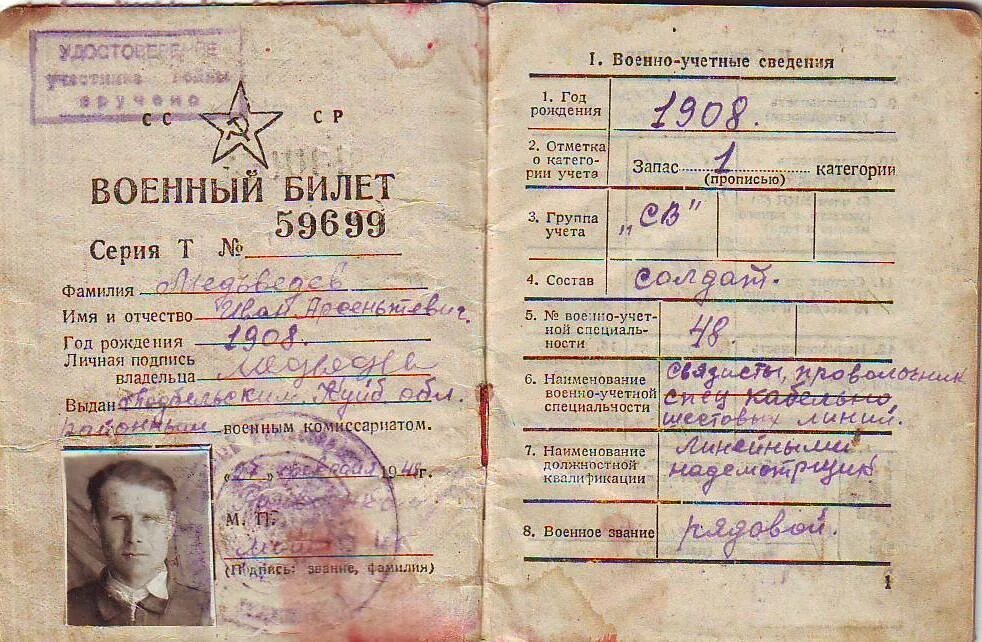 УДОСТОВЕРЕНИЕ
участника войны
вручено
СС СР
ВОЕННЫЙ БИЛЕТ
59699
Серия Т №
Фамилия Медъведев
Имя и отчество Иван Арсеньтевич.
Год рождения 1908.
Личная подпись
владельца Медведев
Выдан Куйб обл.
районным военным комиссариатом.
1948 г.
М. П.
(Подпись: звание, фамилия)
I. Военно-учетные сведения
1. Год
рождения
1908.
2. Отметка
о катего-
рии учета
Запас 1 категории
(прописью)
3. Группа
учета
„СВ"
4. Состав
солдат.
5. № военно-учет-
ной специаль-
ности
48.
6. Наименование
военно-учетной
специальности
связисты, проволочник
спец кабельно
шестовых линий.
7. Наименование
должностной
квалификации
Линейными
надсмотрщик
8. Военное звание
рядовой.
1